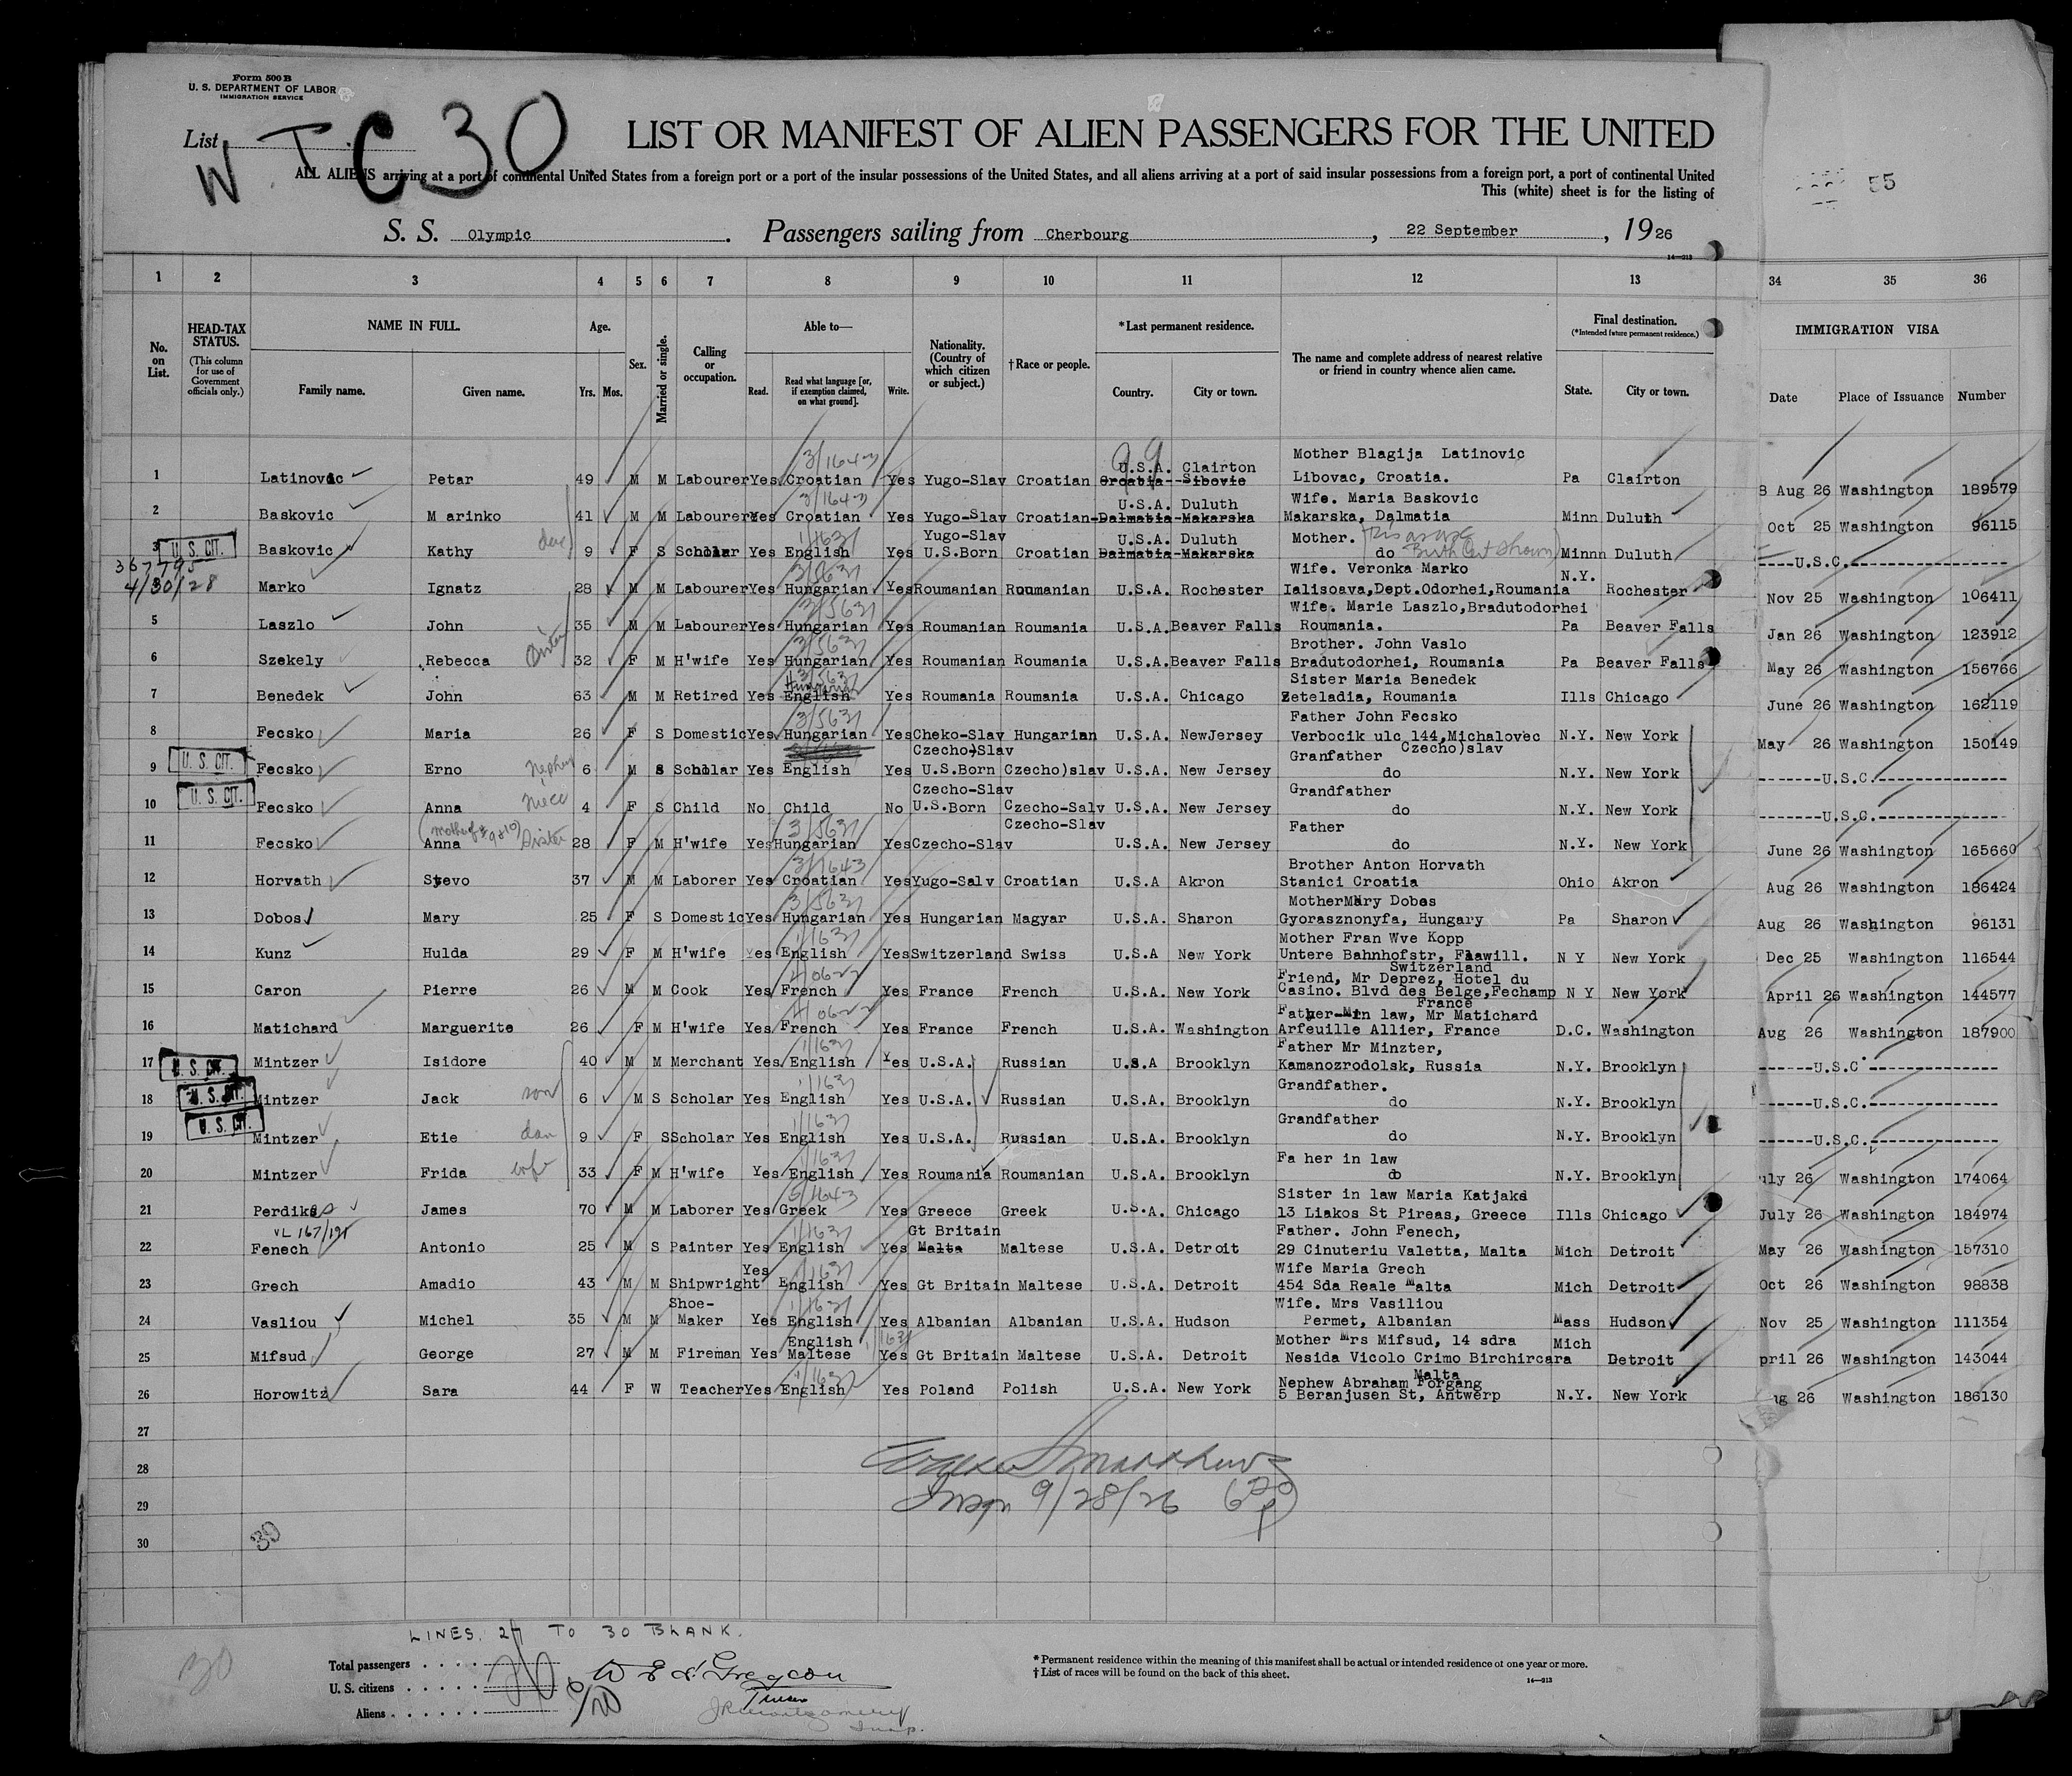 Form 500 B
U. S. DEPARTMENT OF LABOR
IMMIGRATION SERVICE
List T.C 30
W
LIST OR MANIFEST OF ALIEN PASSENGERS FOR THE UNITED
ALL ALIENS arriving at a port of continental United States from a foreign port or a port of the insular possessions of the United States, and all aliens arriving at a port of said insular possessions from a foreign port, a port of continental United
This (white) sheet is for the listing of
55
S. S. Olympic. Passengers sailing from Cherbourg, 22 September, 1926
14—213
1 2 3 4 5 6 7 8 9 10 11 12 13 34 35 36
No. on List. HEAD-TAX STATUS. (This column for use of Government officials only.) NAME IN FULL. Family name. Given name. Age. Yrs. Mos. Sex. Married or single. Calling or occupation. Able to— Read. Read what language [or, if exemption claimed, on what ground]. Write. Nationality. (Country of which citizen or subject.) †Race or people. *Last permanent residence. Country. City or town. The name and complete address of nearest relative or friend in country whence alien came. Final destination. (*Intended future permanent residence.) State. City or town. IMMIGRATION VISA Date Place of Issuance Number
3/1643 99 U.S.A. Clairton Mother Blagija Latinovic
1 Latinovic Petar 49 M M Labourer Yes Croatian Yes Yugo-Slav Croatian Croatia--Sibovic Libovac, Croatia. Pa Clairton 8 Aug 26 Washington 189579
3/1643 U.S.A. Duluth Wife. Maria Baskovic
2 Baskovic M arinko 41 M M Labourer Yes Croatian Yes Yugo-Slav Croatian Dalmatia-Makarska Makarska, Dalmatia Minn Duluth Oct 25 Washington 96115
1/1631 Yugo-Slav U.S.A. Duluth Mother.
3 U. S. CIT. Baskovic Kathy 9 F S Scholar Yes English Yes U.S.Born Croatian Dalmatia-Makarska do Birth Cert Shown Minnn Duluth ----U.S.C.----
367795
4/30/28
3/5631 Wife. Veronka Marko N.Y.
Marko Ignatz 28 M M Labourer Yes Hungarian Yes Roumanian Roumanian U.S.A. Rochester Ialisoava,Dept.Odorhei,Roumania Rochester Nov 25 Washington 106411
3/5631 Wife. Marie Laszlo,Bradutodorhei
5 Laszlo John 35 M M Labourer Yes Hungarian Yes Roumanian Roumania U.S.A. Beaver Falls Roumania. Pa Beaver Falls Jan 26 Washington 123912
3/5631 Brother. John Vaslo
6 Szekely Rebecca Sister 32 F M H'wife Yes Hungarian Yes Roumanian Roumania U.S.A. Beaver Falls Bradutodorhei, Roumania Pa Beaver Falls May 26 Washington 156766
3/5631 Hungarian Sister Maria Benedek
7 Benedek John 63 M M Retired Yes English Yes Roumania Roumania U.S.A. Chicago Zeteladia, Roumania Ills Chicago June 26 Washington 162119
3/5631 Father John Fecsko
8 Fecsko Maria 26 F S Domestic Yes Hungarian Yes Cheko-Slav Hungarian U.S.A. NewJersey Verbocik ulc 144,Michalovec N.Y. New York May 26 Washington 150149
Czecho)Slav Granfather Czecho)slav
9 U. S. CIT. Fecsko Erno Nephew 6 M S Scholar Yes English Yes U.S.Born Czecho)slav U.S.A. New Jersey do N.Y. New York -------U.S.C.----
Czecho-Slav Grandfather
10 U. S. CIT. Fecsko Anna niece 4 F S Child No Child No U.S.Born Czecho-Salv U.S.A. New Jersey do N.Y. New York -------U.S.C.----
(mother of # 9 & 10) 3/5631 Czecho-Slav Father
11 Fecsko Anna Sister 28 F M H'wife Yes Hungarian Yes Czecho-Slav U.S.A. New Jersey do N.Y. New York June 26 Washington 165660
3/1643 Brother Anton Horvath
12 Horvath Stevo 37 M M Laborer Yes Croatian Yes Yugo-Salv Croatian U.S.A Akron Stanici Croatia Ohio Akron Aug 26 Washington 186424
3/5631 Mother Mary Dobos
13 Dobos Mary 25 F S Domestic Yes Hungarian Yes Hungarian Magyar U.S.A. Sharon Gyorasznonyfa, Hungary Pa Sharon Aug 26 Washington 96131
1/1631 Mother Fran Wve Kopp
14 Kunz Hulda 29 F M H'wife Yes English Yes Switzerland Swiss U.S.A New York Untere Bahnhofstr, Flawill. N Y New York Dec 25 Washington 116544
Switzerland
4/0622 Friend, Mr Deprez, Hotel du
15 Caron Pierre 26 M M Cook Yes French Yes France French U.S.A. New York Casino. Blvd des Belge,Fechamp N Y New York April 26 Washington 144577
France
4/0622 Father-in law, Mr Matichard
16 Matichard Marguerite 26 F M H'wife Yes French Yes France French U.S.A. Washington Arfeuille Allier, France D.C. Washington Aug 26 Washington 187900
1/1631 Father Mr Minzter,
17 U. S. CIT. Mintzer Isidore 40 M M Merchant Yes English Yes U.S.A. Russian U.S.A Brooklyn Kamanozrodolsk, Russia N.Y. Brooklyn ------U.S.C----
1/1631 Grandfather.
18 U. S. CIT. Mintzer Jack son 6 M S Scholar Yes English Yes U.S.A. Russian U.S.A. Brooklyn do N.Y. Brooklyn ------U.S.C.----
1/1631 Grandfather
19 U. S. CIT. Mintzer Etie dau 9 F S Scholar Yes English Yes U.S.A. Russian U.S.A. Brooklyn do N.Y. Brooklyn ------U.S.C.----
1/1631 Fa her in law
20 Mintzer Frida wife 33 F M H'wife Yes English Yes Roumania Roumanian U.S.A. Brooklyn do N.Y. Brooklyn uly 26 Washington 174064
5/1643 Sister in law Maria Katjaks
21 Perdikes James 70 M M Laborer Yes Greek Yes Greece Greek U.S.A. Chicago 13 Liakos St Pireas, Greece Ills Chicago July 26 Washington 184974
VL 167/191 1/1631 Gt Britain Father. John Fenech,
22 Fenech Antonio 25 M S Painter Yes English Yes Malta Maltese U.S.A. Detroit 29 Cinuteriu Valetta, Malta Mich Detroit May 26 Washington 157310
Yes 1/1631 Wife Maria Grech
23 Grech Amadio 43 M M Shipwright English Yes Gt Britain Maltese U.S.A. Detroit 454 Sda Reale Malta Mich Detroit Oct 26 Washington 98838
Shoe- 1/1631 Wife. Mrs Vasiliou
24 Vasliou Michel 35 M M Maker Yes English Yes Albanian Albanian U.S.A. Hudson Permet, Albanian Mass Hudson Nov 25 Washington 111354
English 1/1631 Mother Mrs Mifsud, 14 sdra Mich
25 Mifsud George 27 M M Fireman Yes Maltese Yes Gt Britain Maltese U.S.A. Detroit Nesida Vicolo Crimo Birchircara Detroit pril 26 Washington 143044
Malta
1/1631 Nephew Abraham Forgang
26 Horowitz Sara 44 F W Teacher Yes English Yes Poland Polish U.S.A. New York 5 Beranjusen St, Antwerp N.Y. New York ug 26 Washington 186130
27
28
29 Insp 9/28/26 620 p
30
30
LINES. 27 TO 30 BLANK.
30
Total passengers
U. S. citizens
Aliens
Insp.
* Permanent residence within the meaning of this manifest shall be actual or intended residence of one year or more.
† List of races will be found on the back of this sheet.
14—213